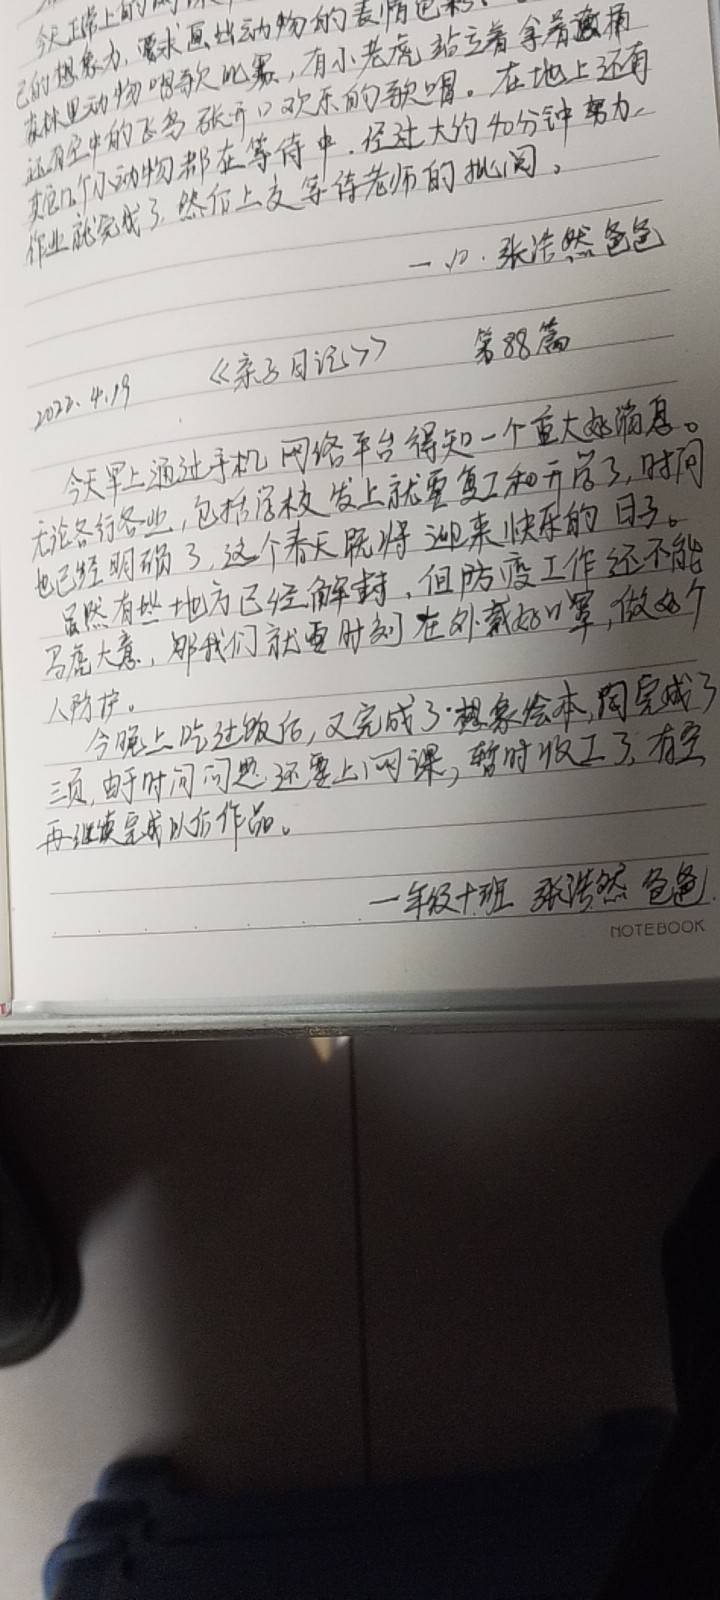 今天正常上的网课
己的想象力,要求画出动物的表情色彩、
森林里动物唱歌比赛,有小老虎站立着拿着
还有空中的飞鸟张开口欢乐的歌唱。在地上还有
其它几个小动物都在等待中.经过大约40分钟努力、
作业就完成了 然后上交等待老师的批阅。
一.10.张浩然爸爸
2022.4.19 《亲子日记》 第88篇
今天早上通过手机网络平台得知一个重大好消息。
无论各行各业,包括学校发上就要复工和开学了,时间
也已经明确了,这个春天既将迎来快乐的日子。
虽然有些地方已经解封,但防疫工作还不能
马虎大意,那我们就要时刻在外戴好口罩,做好个
人防护。
今晚上吃过饭后,又完成了想象绘本,完成了
三页,由于时间问题还要上网课,暂时收工了,有空
再继续完成以后作品。
一年级十班 张浩然爸爸
NOTEBOOK